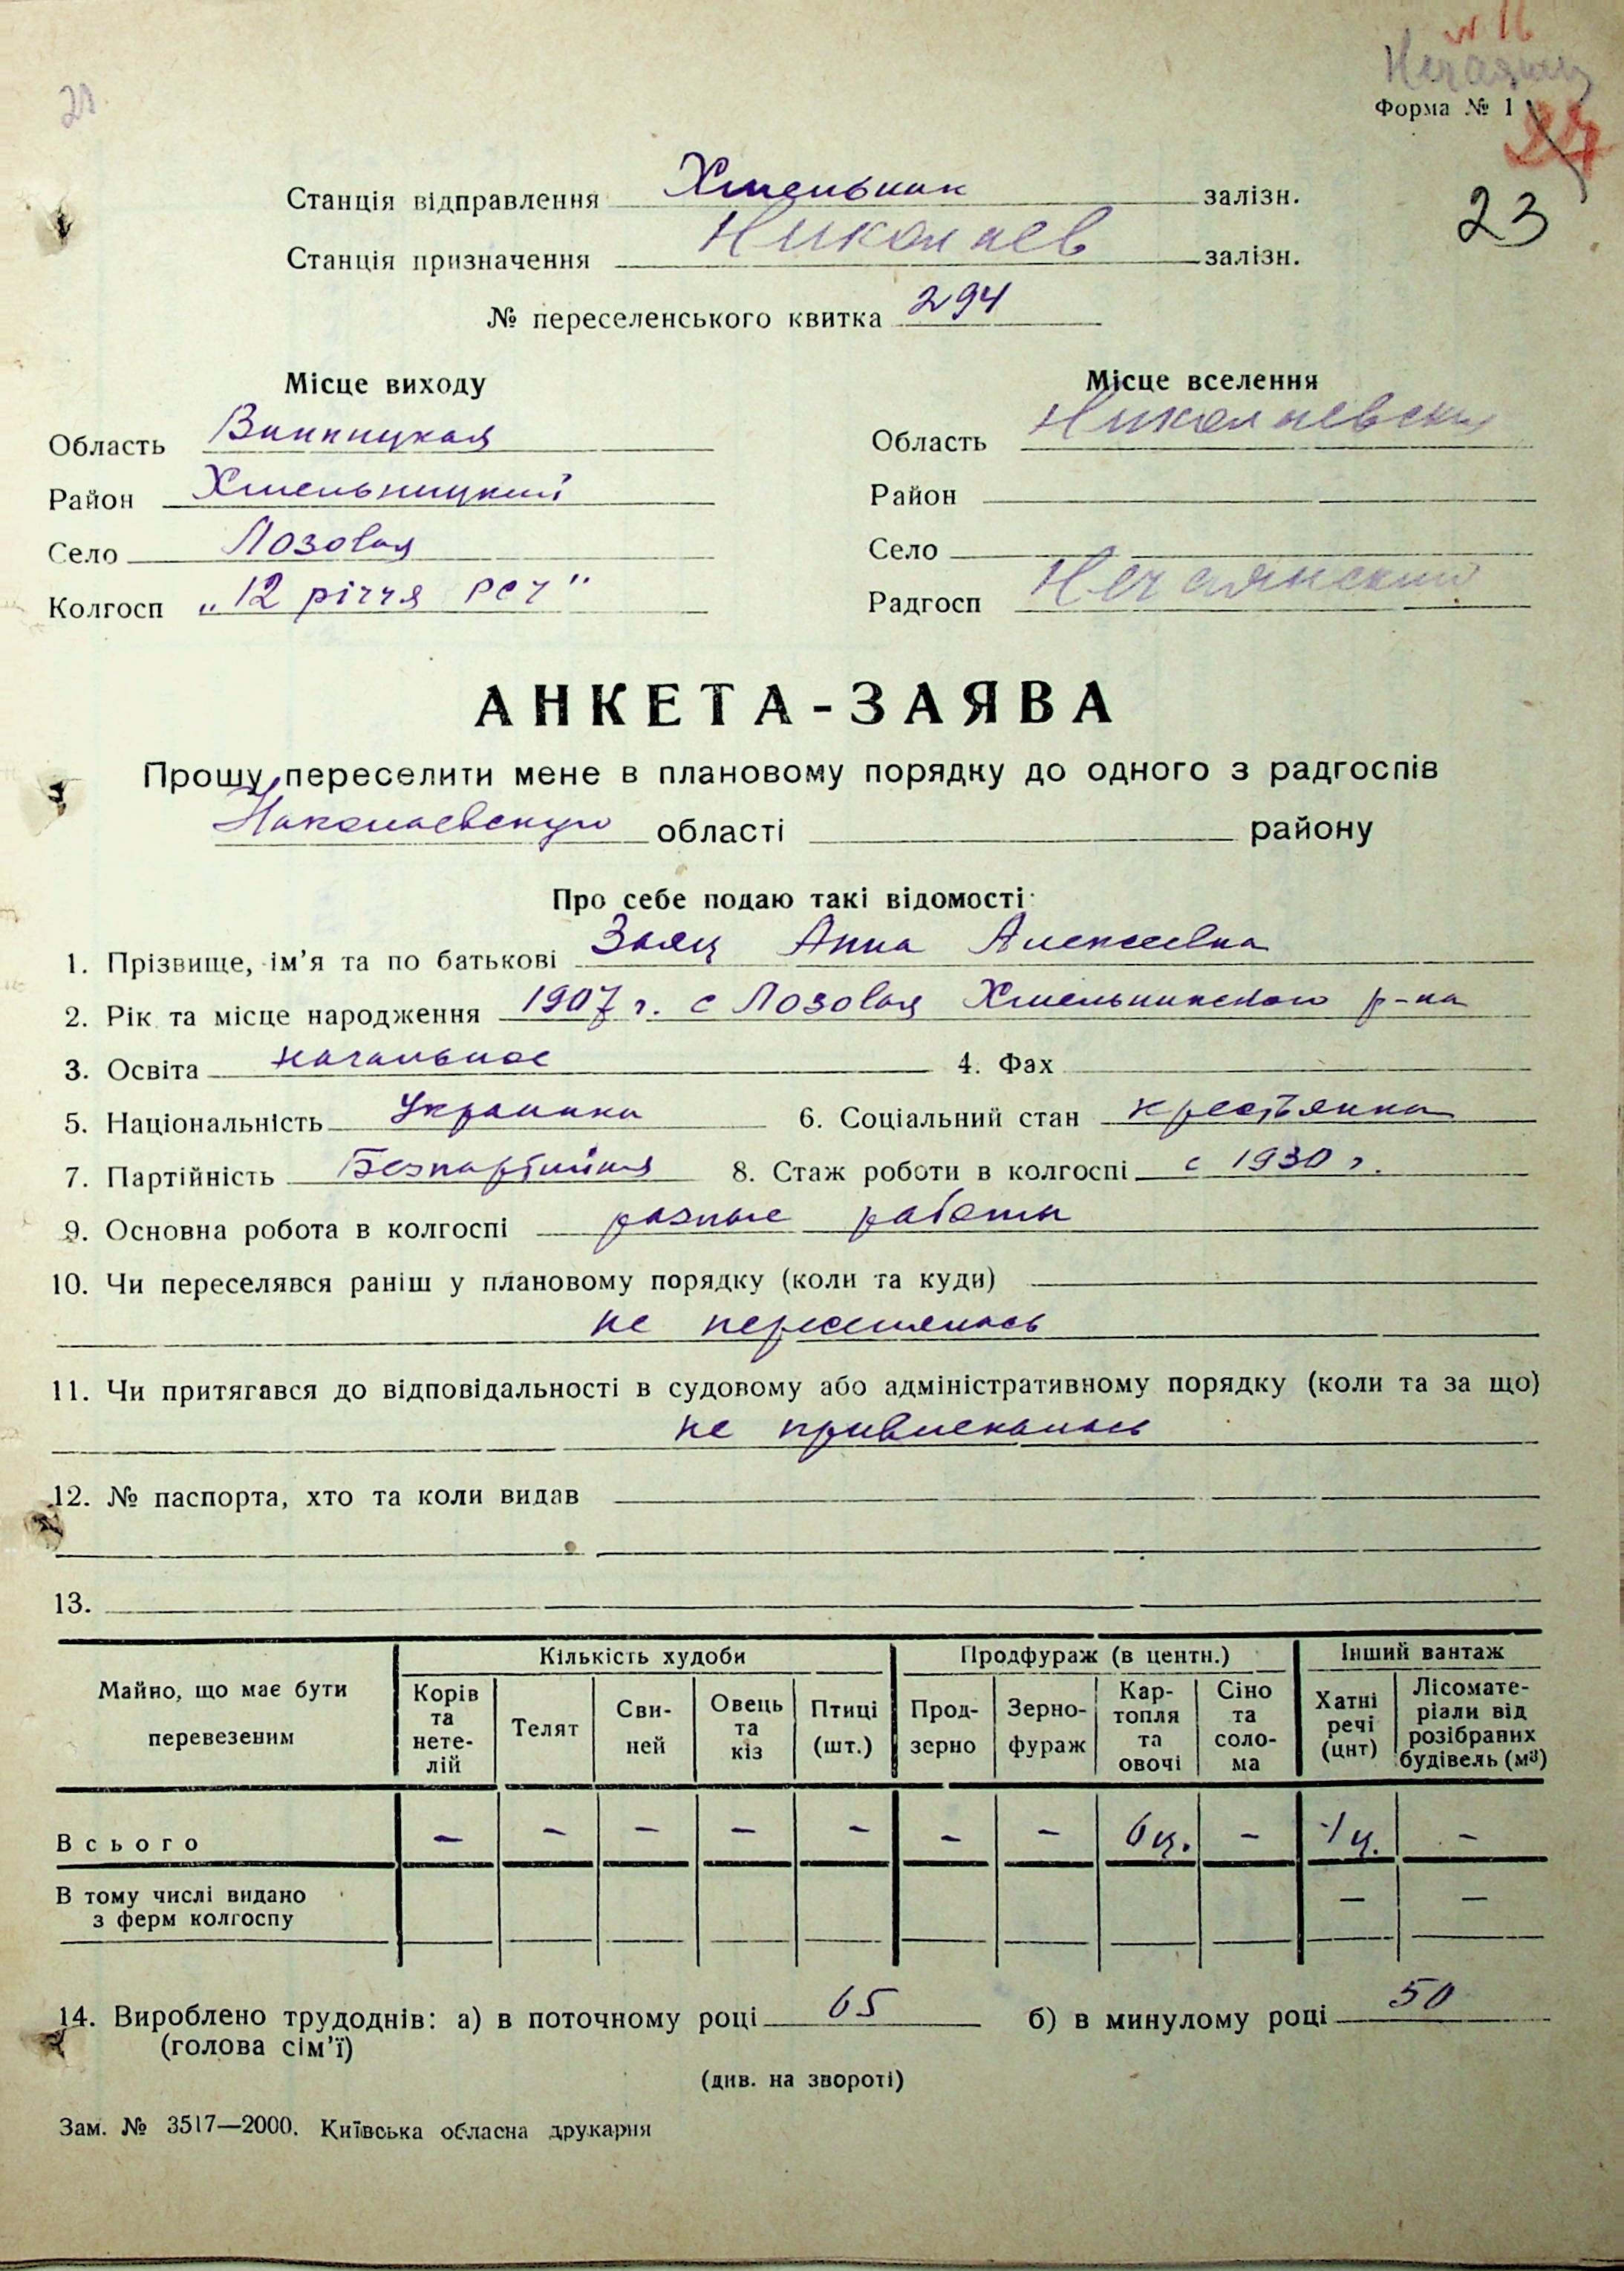 21
Форма № 1
23
Станція відправлення Хмельник залізн.
Станція призначення Николаев залізн.
№ переселенського квитка 294
Місце виходу
Місце вселення
Область Винницкая
Область Николаевская
Район Хмельницкий
Район
Село Лозовая
Село
Колгосп „12 річчя РСЧ"
Радгосп Нечаянский
АНКЕТА-ЗАЯВА
Прошу переселити мене в плановому порядку до одного з радгоспів
Николаевскую області району
Про себе подаю такі відомості
1. Прізвище, ім'я та по батькові Заяц Анна Алексеевна
2. Рік та місце народження 1907 г. с Лозовая Хмельникского р-на
3. Освіта начальное 4. Фах
5. Національність Украинка 6. Соціальний стан крестьянка
7. Партійність Безпартийная 8. Стаж роботи в колгоспі с 1930 г.
9. Основна робота в колгоспі разные работы
10. Чи переселявся раніш у плановому порядку (коли та куди)
не переселялась
11. Чи притягався до відповідальності в судовому або адміністративному порядку (коли та за що)
не привлекалась
12. № паспорта, хто та коли видав
13.
Майно, що має бути перевезеним
Кількість худоби
Продфураж (в центн.)
Інший вантаж
Корів та нете-лій
Телят
Сви-ней
Овець та кіз
Птиці (шт.)
Прод-зерно
Зерно-фураж
Кар-топля та овочі
Сіно та соло-ма
Хатні речі (цнт)
Лісомате-ріали від розібраних будівель (м³)
Всього – – – – – – – 6ц. – 1ц. –
В тому числі видано з ферм колгоспу – –
14. Вироблено трудоднів: а) в поточному році 65 б) в минулому році 50
(голова сім'ї)
(див. на звороті)
Зам. № 3517—2000. Київська обласна друкарня